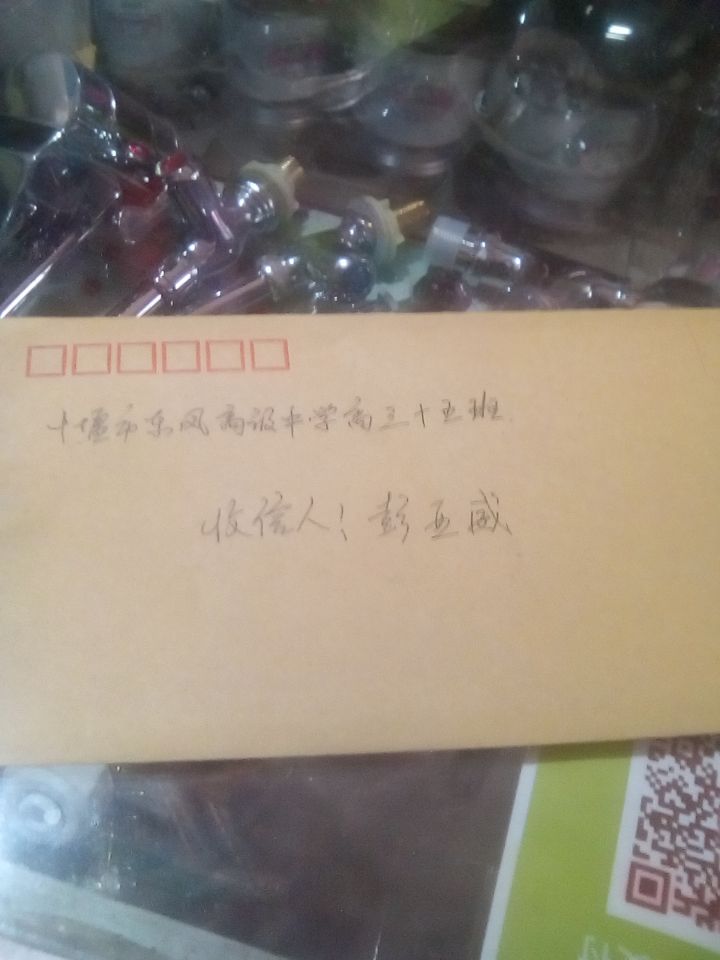 十堰市东风高级中学高三十五班
收信人：彭亚威